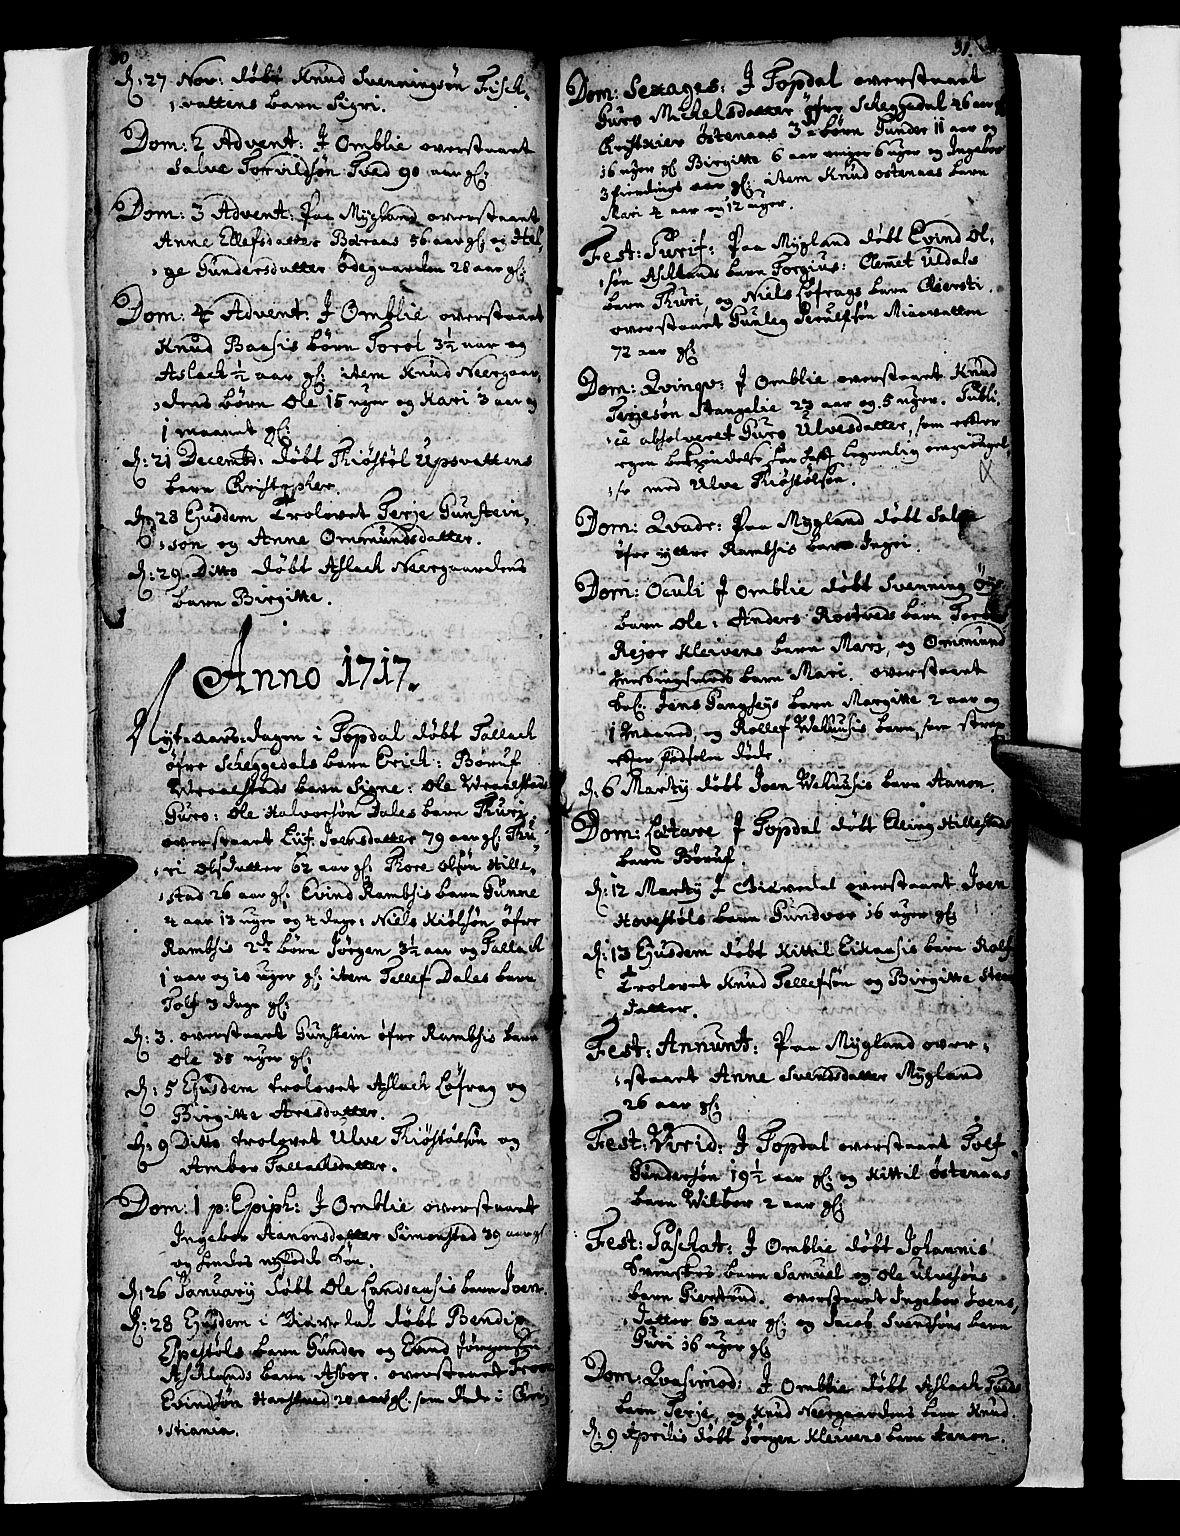 30
d: 27 Nov: døbt Knud Svenningsøn Fisch-
vattens barn Sigri.
Dom: 2 Advent: J Omblie overstaaet
Salve Torvildsøn Tved 90 aar gl:
Dom: 3 Advent: Paa Mygland overstaaet
Anne Ellefsdatter Boraas 56 aar gl: og Hel-
ge Gundersdatter Ødegaarden 28 aar gl:
Dom: 4 Advent: J Omblie overstaaet
Knud Baasis børn Torol 3½ aar og
Aslach ½ aar gl: item Knud Neergaar-
dens børn Ole 15 uger og Kari 3 aar og
1 maanet gl:
d: 21 Decembr: døbt Kiøstøl Upsvattens
barn Christopher.
d: 28 Ejusdem trolovet Terje Gunstein-
søn og Anne Ommundsdatter.
d: 29 Ditto døbt Aslach Neergaardens
barn Birgitte.
Anno 1717.
Nyt-aars-dagen i Topdal døbt Tallach
øfre Scheggedals barn Erich: Børuf
Wraalstads barn Signe: Ole Wraalstads
Guro: Ole Halvorsøn Dales barn Thuri
overstaaet Liif: Joensdatter 79 aar gl: Thu-
ri Olsdatter 62 aar gl: Thore Olsøn Hille-
stad 26 aar gl: Evind Ramhsis barn Gunne
4 aar 13 uger og 4 dage: Niels Kiølsøn øfre
Ramhsis 2de børn Jørgen 3½ aar og Tallach
1 aar og 10 uger gl: item Tellef Dales barn
Tolf 3 dage gl:
d: 3. overstaaet Gunstein øfre Ramhsis barn
Ole 35 uger gl:
d: 5 Ejusdem trolovet Aslach Løfrag og
Birgitte Aresdatter.
d: 9 Ditto trolovet Ulve Kiøstølsøn og
Ambor Tallachsdatter.
Dom: 1 p: Epiph: J Omblie overstaaet
Ingebor Aanonsdatter Simonstad 39 aar gl
og hendes nyfødde Søn.
d: 26 Januarij døbt Ole Landsaasis barn Joen.
d: 28 Ejusdem i døbt Bendix
Espestøls barn Gunder og Evind Jørgensøn
Aschlands barn Asbor. overstaaet
Evindsøn Harstved 20 aar gl: som døde i Chri-
stiania.
31.
Dom: Sexages: J Topdal overstaaet
Guro Michelsdatter øfre Scheggedal 46 aar gl
Christxier Østenaas 3de børn Gunder 11 aar og
16 uger gl: Birgitte 6 aar 6 uger og Ingebor
3 fierdings aar gl: item Knud Østenaas barn
Mari 4 aar og 12 uger.
Fest: Purif: Paa Mygland døbt Evind Ol-
søn Aschlands barn Torgius: Clemet Uldals
barn Thuri, og Niels Løfrags barn Chiersti.
overstaaet Gunleg Miaavatten
72 aar gl:
Dom: Qvinqv: J Omblie overstaaet Knud
Terjesøn Stangelie 23 aar og 5 uger. Publi-
ce absolveret Guro Ulvesdatter, som efter
egen bekiendelse har haft legemlig omgiængel-
se med Ulve Kiøstølsøn.
Dom: Qvadr: Paa Mygland døbt
øfre yttre Ramhsis barn Ingri.
Dom: Oculi J Omblie døbt Svenning
barn Ole: Anders Rostveds barn
Rejer Kleivens barn Mari, og Ommund
barn Mari. overstaaet
Jens Gangseys barn Margitte 2 aar og
1 Maaned, og Rollef Wehuusis barn, som strax
efter fødselen døde.
d: 6 Martij døbt Joen Wehuusis barn Aanon.
Dom: Lætare J Topdal døbt Elling Hillestads
barn Børuf.
d: 12 Martij J overstaaet Joen
Hovestøls barn Gundvor 16 uger gl:
d: 13 Ejusdem døbt Kittil Eikaasis barn Rolf
trolovet Knud Tellefsøn og Birgitte
datter.
Fest: Annunt: Paa Mygland over-
staaet Anne Svendsdatter Mygland
26 aar gl:
Fest: Virid: J Topdal overstaaet Tolf
Gundersøn 19½ aar gl: og Kittil Østenaas
barn Wilbor 2 aar gl:
Fest: Paschat: J Omblie døbt Johannis
Svenskes barn Samuel og Ole Ulvesøns
barn Giertrud. overstaaet Ingebor Joens-
datter 63 aar gl: og Jacob Svendsøns barn
Guri 16 uger gl:
Dom: Qvasimod: J Omblie døbt Aslach Tveds
barn Terje, og Knud Neergaardens barn Knud.
d: 9 Aprilis døbt Jørgen Kleivens barn Aanon.